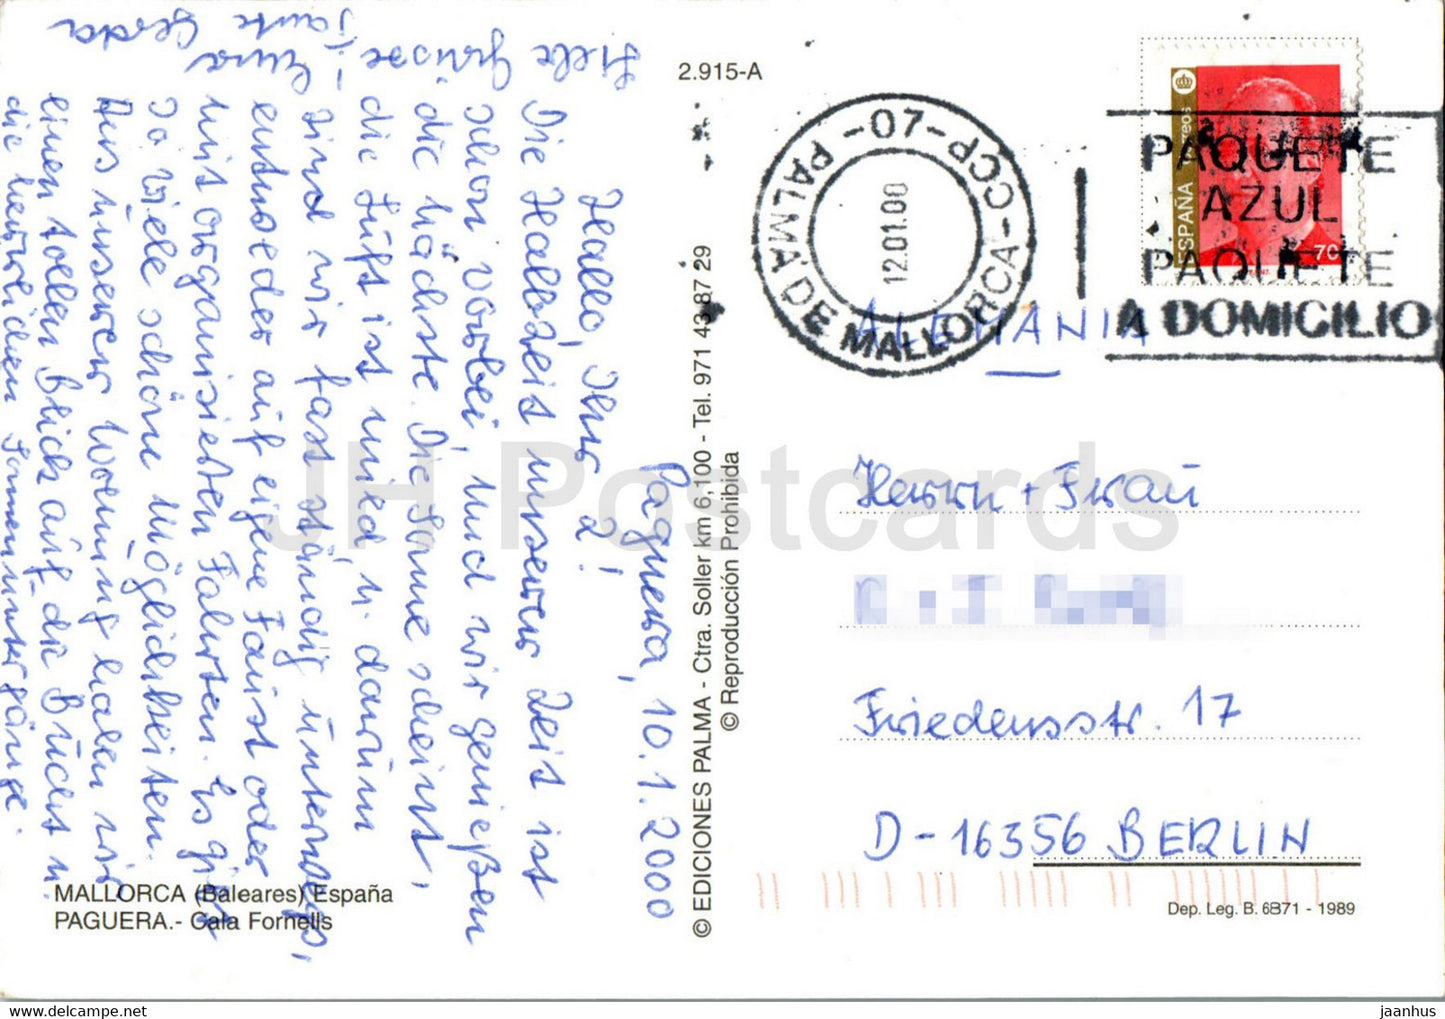 Paguera, 10.1.2000
Hallo, Ihr 2!
Die Halbzeit unserer Zeit ist
schon vorbei, und wir genießen
die nächste. Die Sonne scheint,
die Luft ist mild, u. darum
sind wir fast ständig unterwegs,
entweder auf eigene Faust oder
mit organisierten Fahrten. Es gibt
so viele schöne Möglichkeiten.
Aus unserer Wohnung haben wir
einen tollen Blick auf die Bucht u.
die herrlichen Sonnenuntergänge.
Viele Grüsse
Eure
Tante Gerda
MALLORCA (Baleares) España
PAGUERA.- Cala Fornells
2.915-A
© EDICIONES PALMA - Ctra. Soller km 6,100 - Tel. 971 43 87 29
© Reproducción Prohibida
-07-CCCP-
PALMA DE MALLORCA
12.01.00
PAQUETE
AZUL
PAQUETE
A DOMICILIO
Correos
ESPAÑA
70
ALEMANIA
Herrn + Frau
Friedensstr. 17
D-16356 BERLIN
Dep. Leg. B. 6871 - 1989
JH Postcards
jaanhus
https://www.delcampe.net